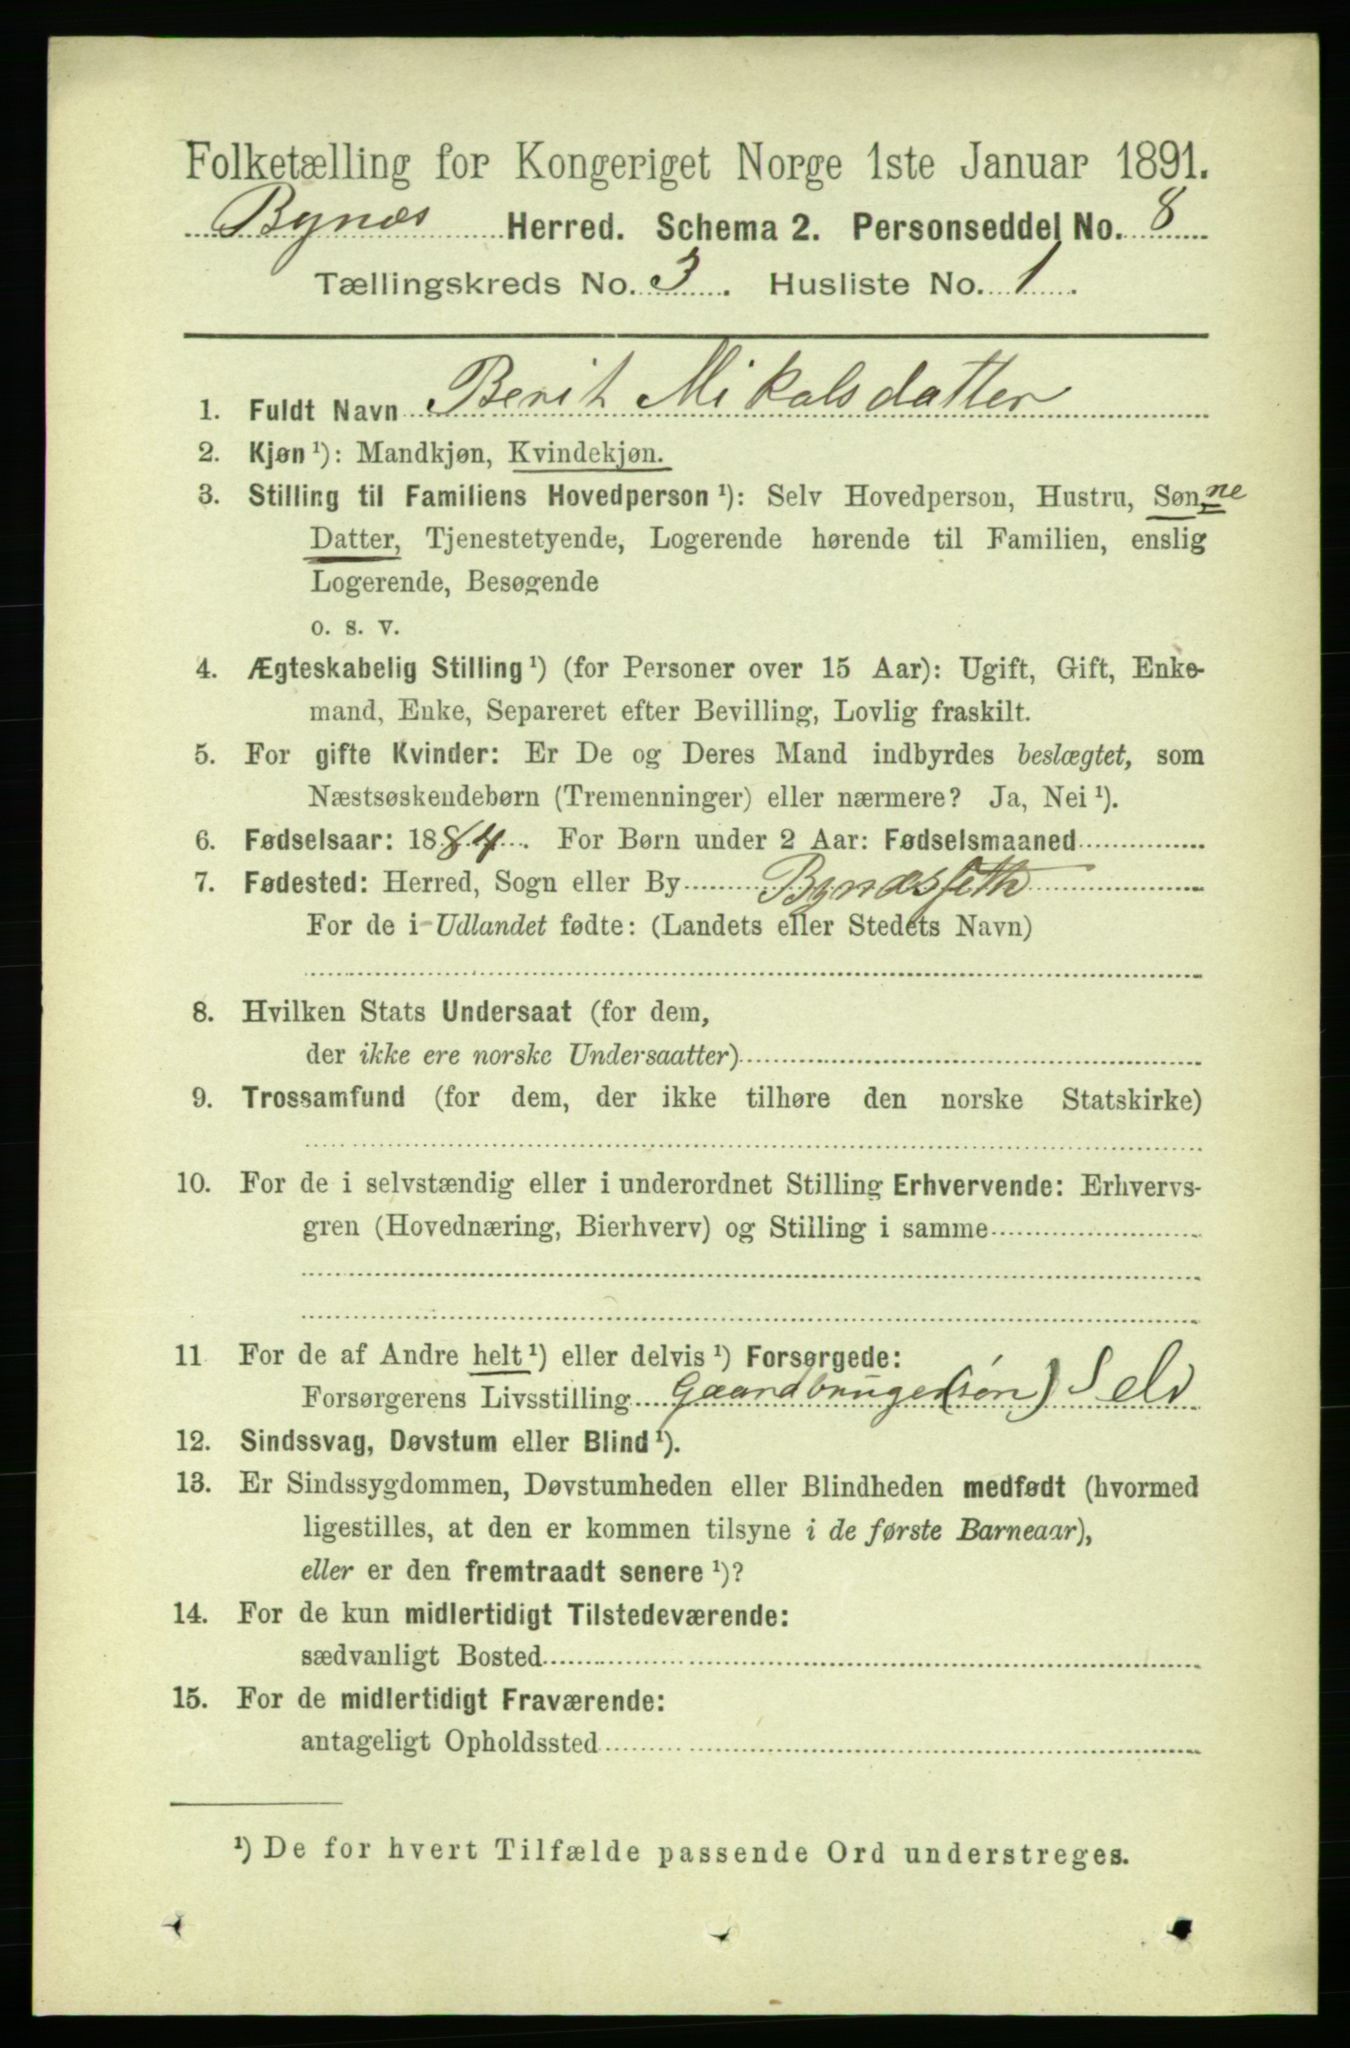 Folketælling for Kongeriget Norge 1ste Januar 1891.
Bynæs Herred. Schema 2. Personseddel No. 8
Tællingskreds No. 3. Husliste No. 1.
1. Fuldt Navn Berit Mikalsdatter
2. Kjøn¹): Mandkjøn, Kvindekjøn.
3. Stilling til Familiens Hovedperson¹): Selv Hovedperson, Hustru, Søn, ne
Datter, Tjenestetyende, Logerende hørende til Familien, enslig
Logerende, Besøgende
o. s. v.
4. Ægteskabelig Stilling¹) (for Personer over 15 Aar): Ugift, Gift, Enke-
mand, Enke, Separeret efter Bevilling, Lovlig fraskilt.
5. For gifte Kvinder: Er De og Deres Mand indbyrdes beslægtet, som
Næstsøskendebørn (Tremenninger) eller nærmere? Ja, Nei¹).
6. Fødselsaar: 1884. For Børn under 2 Aar: Fødselsmaaned
7. Fødested: Herred, Sogn eller By
For de i Udlandet fødte: (Landets eller Stedets Navn)
8. Hvilken Stats Undersaat (for dem,
der ikke ere norske Undersaatter)
9. Trossamfund (for dem, der ikke tilhøre den norske Statskirke)
10. For de i selvstændig eller i underordnet Stilling Erhvervende: Erhvervs-
gren (Hovednæring, Bierhverv) og Stilling i samme
11 For de af Andre helt¹) eller delvis¹) Forsørgede:
Forsørgerens Livsstilling Gaardbruger (søn) Selv
12. Sindssvag, Døvstum eller Blind¹).
13. Er Sindssygdommen, Døvstumheden eller Blindheden medfødt (hvormed
ligestilles, at den er kommen tilsyne i de første Barneaar),
eller er den fremtraadt senere¹)?
14. For de kun midlertidigt Tilstedeværende:
sædvanligt Bosted
15. For de midlertidigt Fraværende:
antageligt Opholdssted
¹) De for hvert Tilfælde passende Ord understreges.